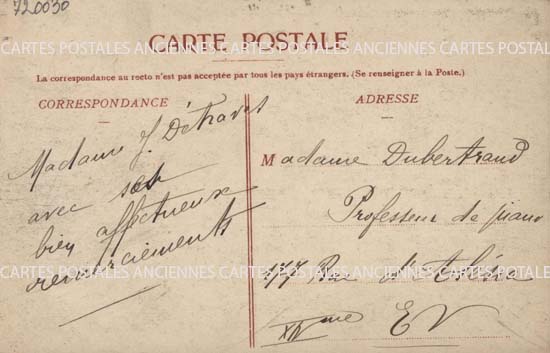 720030
CARTE POSTALE
CARTES POSTALES ANCIENNES CARTES POSTALES ANCIENNES CARTES POSTALES
La correspondance au recto n'est pas acceptée par tous les pays étrangers. (Se renseigner à la Poste.)
CORRESPONDANCE
Madame J. Détraves
avec ses
bien affectueux
remerciements
ADRESSE
Madame Dubertrand
Professeur de piano
177 Rue d'
XIVme EV
CARTES POSTALES ANCIENNES CARTES POSTALES ANCIENNES CARTES POSTALES